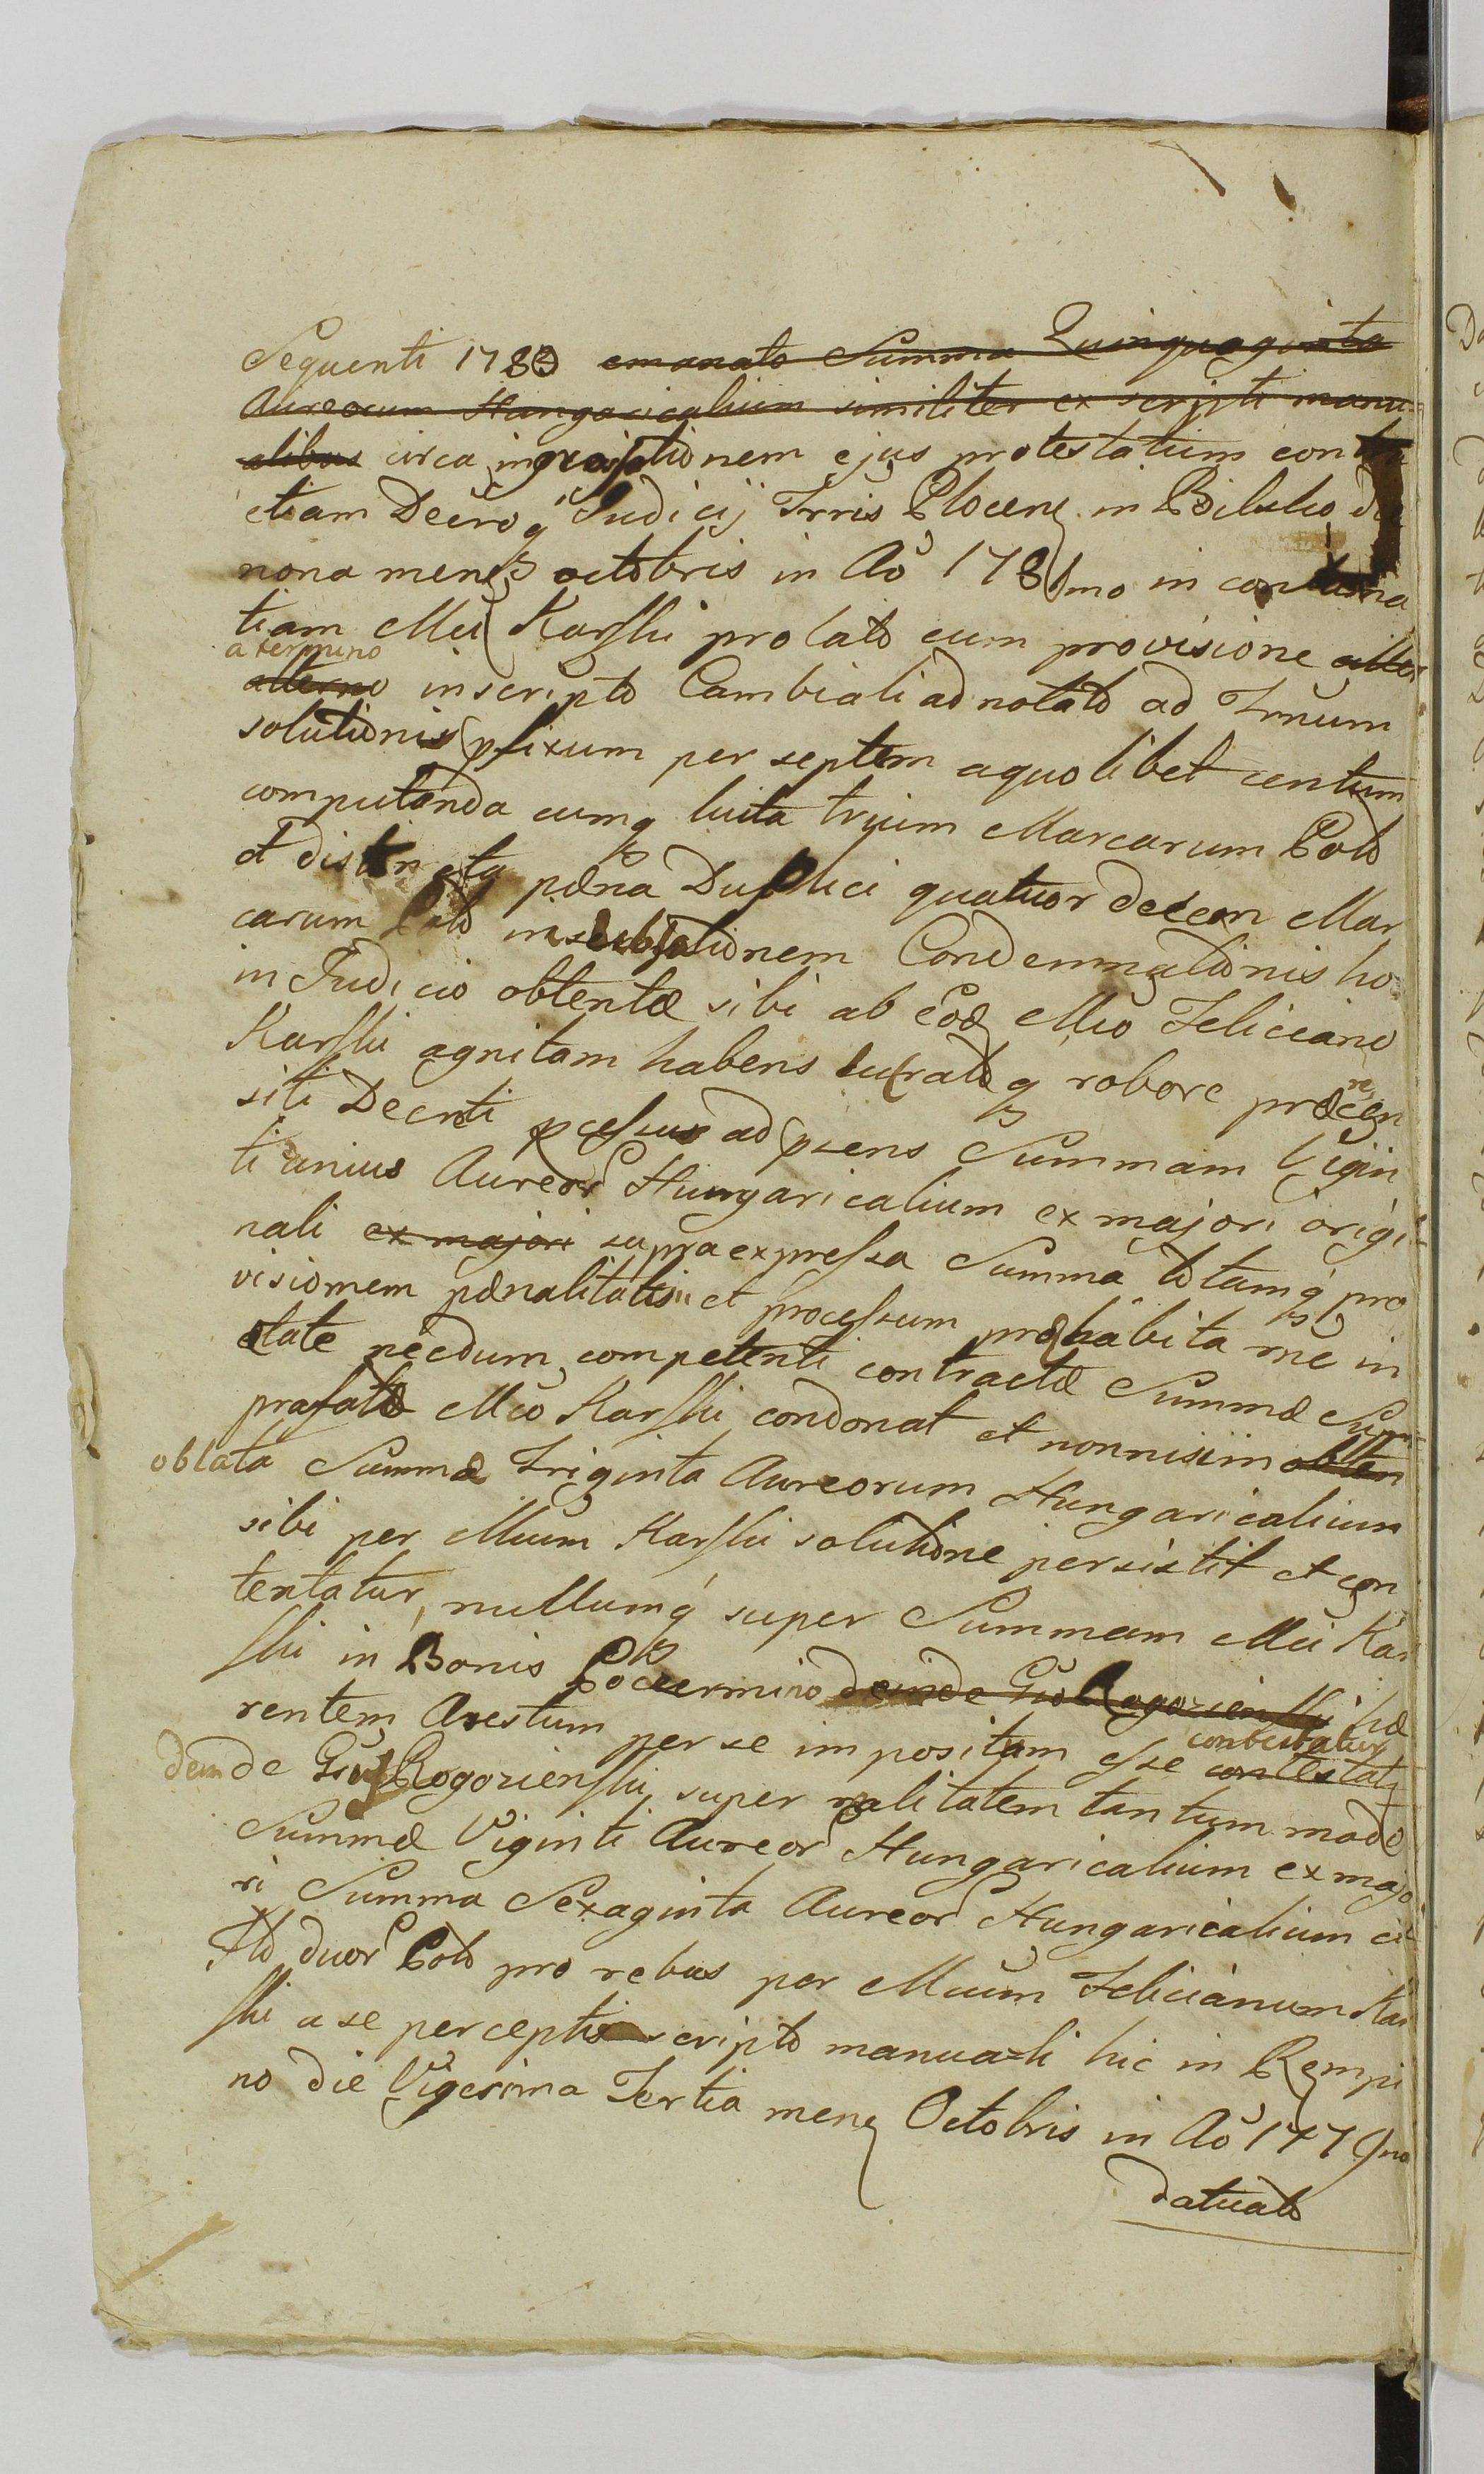 Sequenti 1782 emanato Summa Quinquaginta
Aureorum Hungaricalium similiter ex scripti manu
alibus circa ingrossationem ejus protestatum contra
etiam Decroq Judicij Trris Plocen in Bielsko die
nona mens octobris in Ao 1781mo in contuma
tiam Mci Karski prolato cum provisione
a termino
alterno inscripto Cambiali adnotato ad Trnum
solutionis pfixum per septem a quolibet centum
computanda cumq luita trium Marcarum Pold
et distincta pœna Duplici quatuor decem Mar
carum Pold in Condemnationis ho
in Judicio obtentæ sibi ab eod Mco Feliciano
Karski agnitam habens q robore præ
siti Decreti ad Summam Vigin
ti unius Aureor Hungaricalium ex majori origi
nali ex majori supraexpressa Summa totamq pro
visionem pœnalitatis et processum præhabita rne in
ætate necdum competenti contractæ Summæ
prafato Mco Karski condonat et nonnisi in
oblata Summæ Triginta Aureorum Hungaricalium
sibi per Mcum Karski solutione persistit et con
tentatur, nullumq super Summam Mci Kar
ski in Bonis deinde Gsus Rogozienski hæ
rentem Arestum per se impositum esse contestatur
deinde Gsus Rogozienski super realitatem tantum modo
Summæ Viginti Aureor Hungaricalium ex majo
ri Summa Sexaginta Aureor Hungaricalium et
Flo duor Pold pro rebus per Mcum Felicianum Kar
ski a se perceptis scripto manuali hic in Rempi
no die Vigesima Tertia mens Octobris in Ao 1779no
datuato